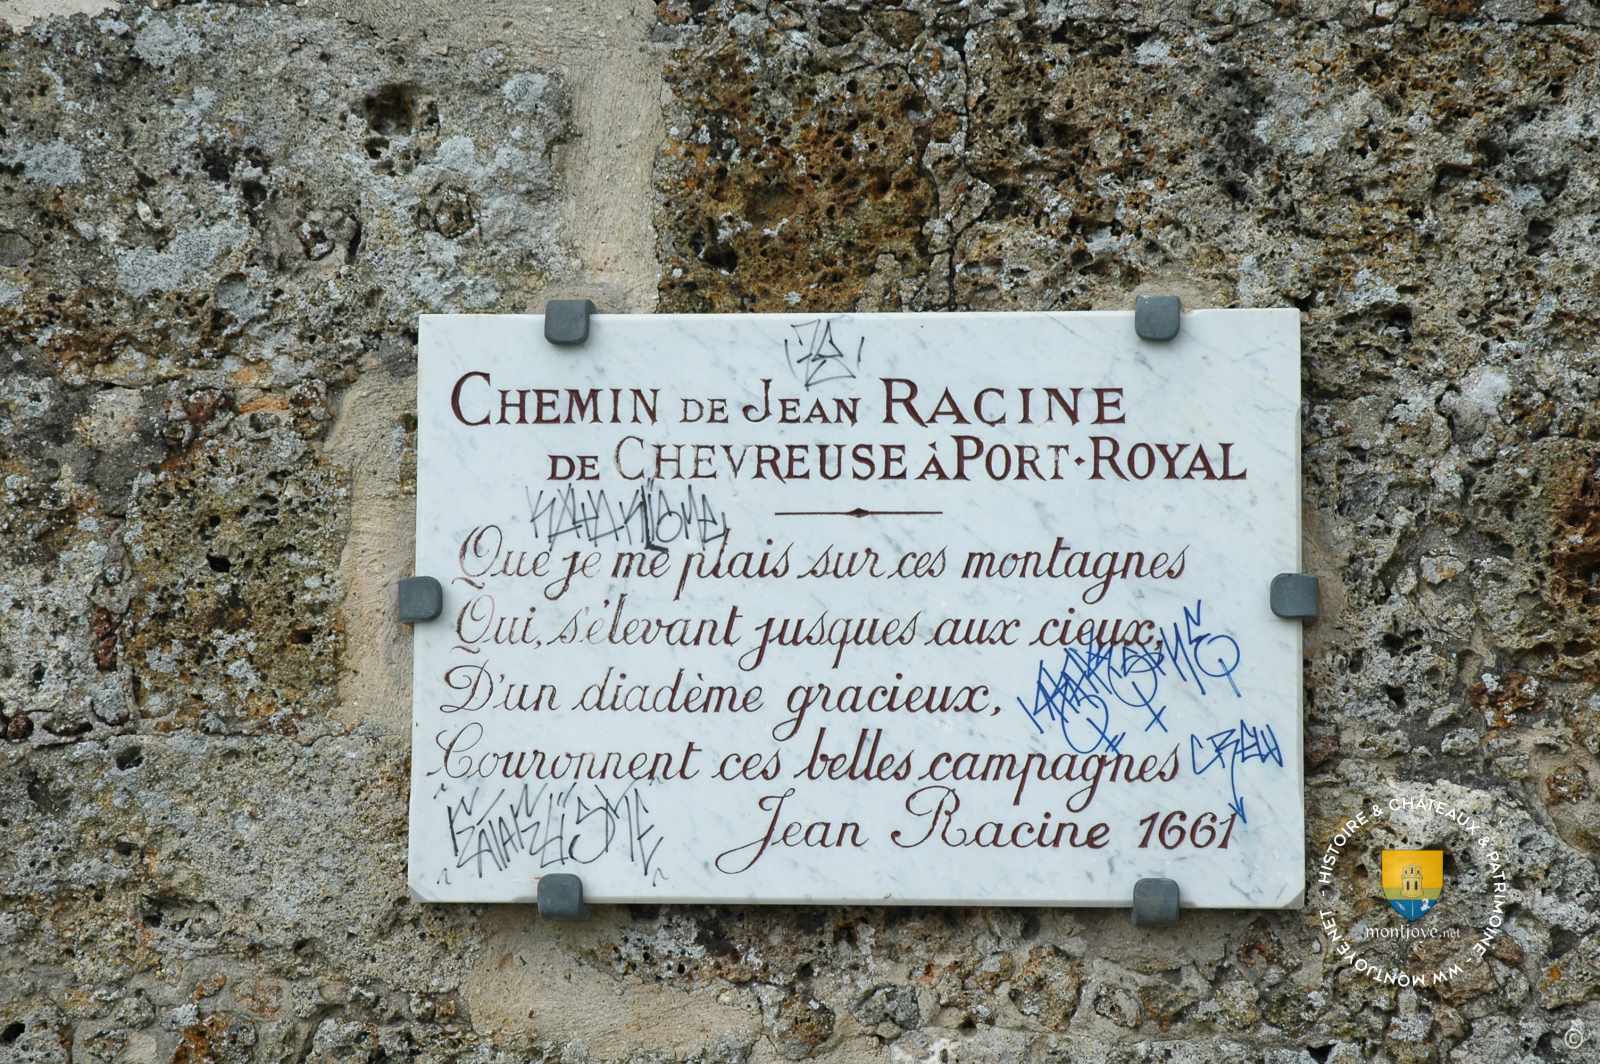 CHEMIN DE JEAN RACINE
DE CHEVREUSE À PORT·ROYAL
Que je me plais sur ces montagnes
Qui, s'élevant jusques aux cieux,
D'un diadème gracieux,
Couronnent ces belles campagnes
CREW
Jean Racine 1661
HISTOIRE & CHÂTEAUX & PATRIMOINE - WW MONTJOYE.NET -
montjoye.net
©